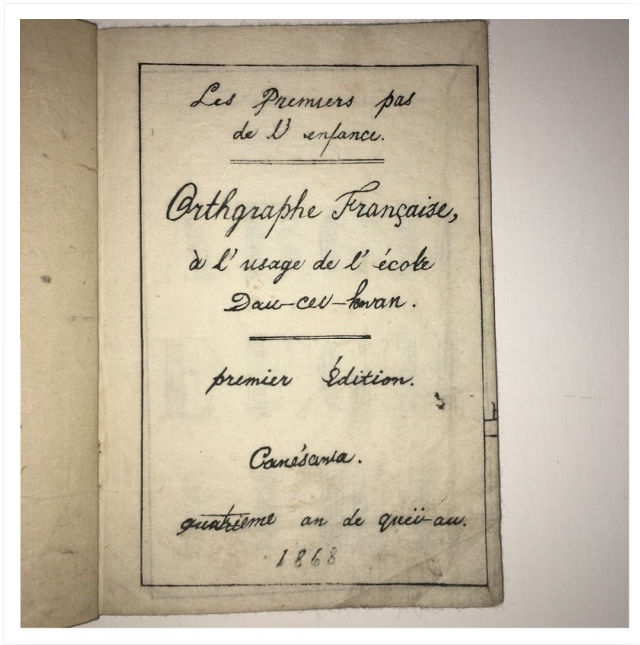 Les Premiers pas
de l' enfance.
Orthgraphe Française,
à l' usage de l' école
Dau-ceu-kwan.
premier Édition.
Canésawa.
quatrieme an de queïi-au.
1868